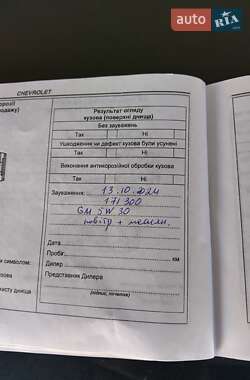 auto RIA.com
CHEVROLET
Результат огляду
кузова (поверхні днища)
Без зауважень
Так Ні
Ушкодження чи дефект кузова були усунені
Так Ні
Виконання антикорозійної обробки кузова
Так Ні
Зауваження: 13.10.2024
171 300
GM 5W30
повітр + масл.
Дата
Пробіг км
Дилер
Представник Дилера
(підпис, печатка)
символом:
кузова
хисту днища